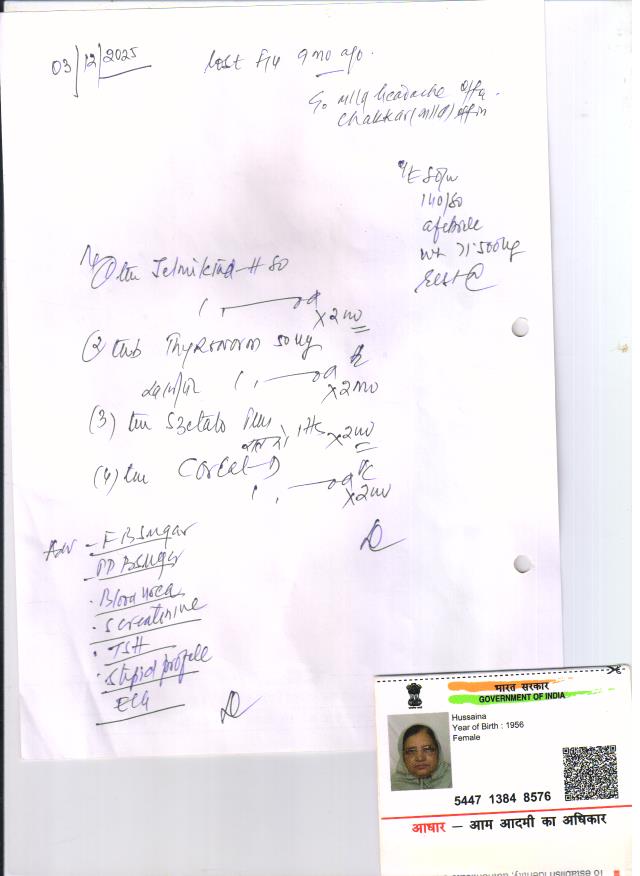 03/12/2025
last F/U 9 mo ago.
C/o mild headache off/on.
chakkar (mild) off/on
O/E
140/80
afebrile
wt 71.500kg
(1) tab Telmikind-H 80
x 2 mo
(2) tab Thyronorm 50 ug
x 2 mo
(3) tab Plus 1 HS x 2 mo
(4) tab Corcal-D
x 2 mo
Adv - F B Sugar
- PP B Sugar
. Blood urea
. S creatinine
. TSH
. S lipid profile
ECG
भारत सरकार
GOVERNMENT OF INDIA
Hussaina
Year of Birth : 1956
Female
5447 1384 8576
आधार – आम आदमी का अधिकार